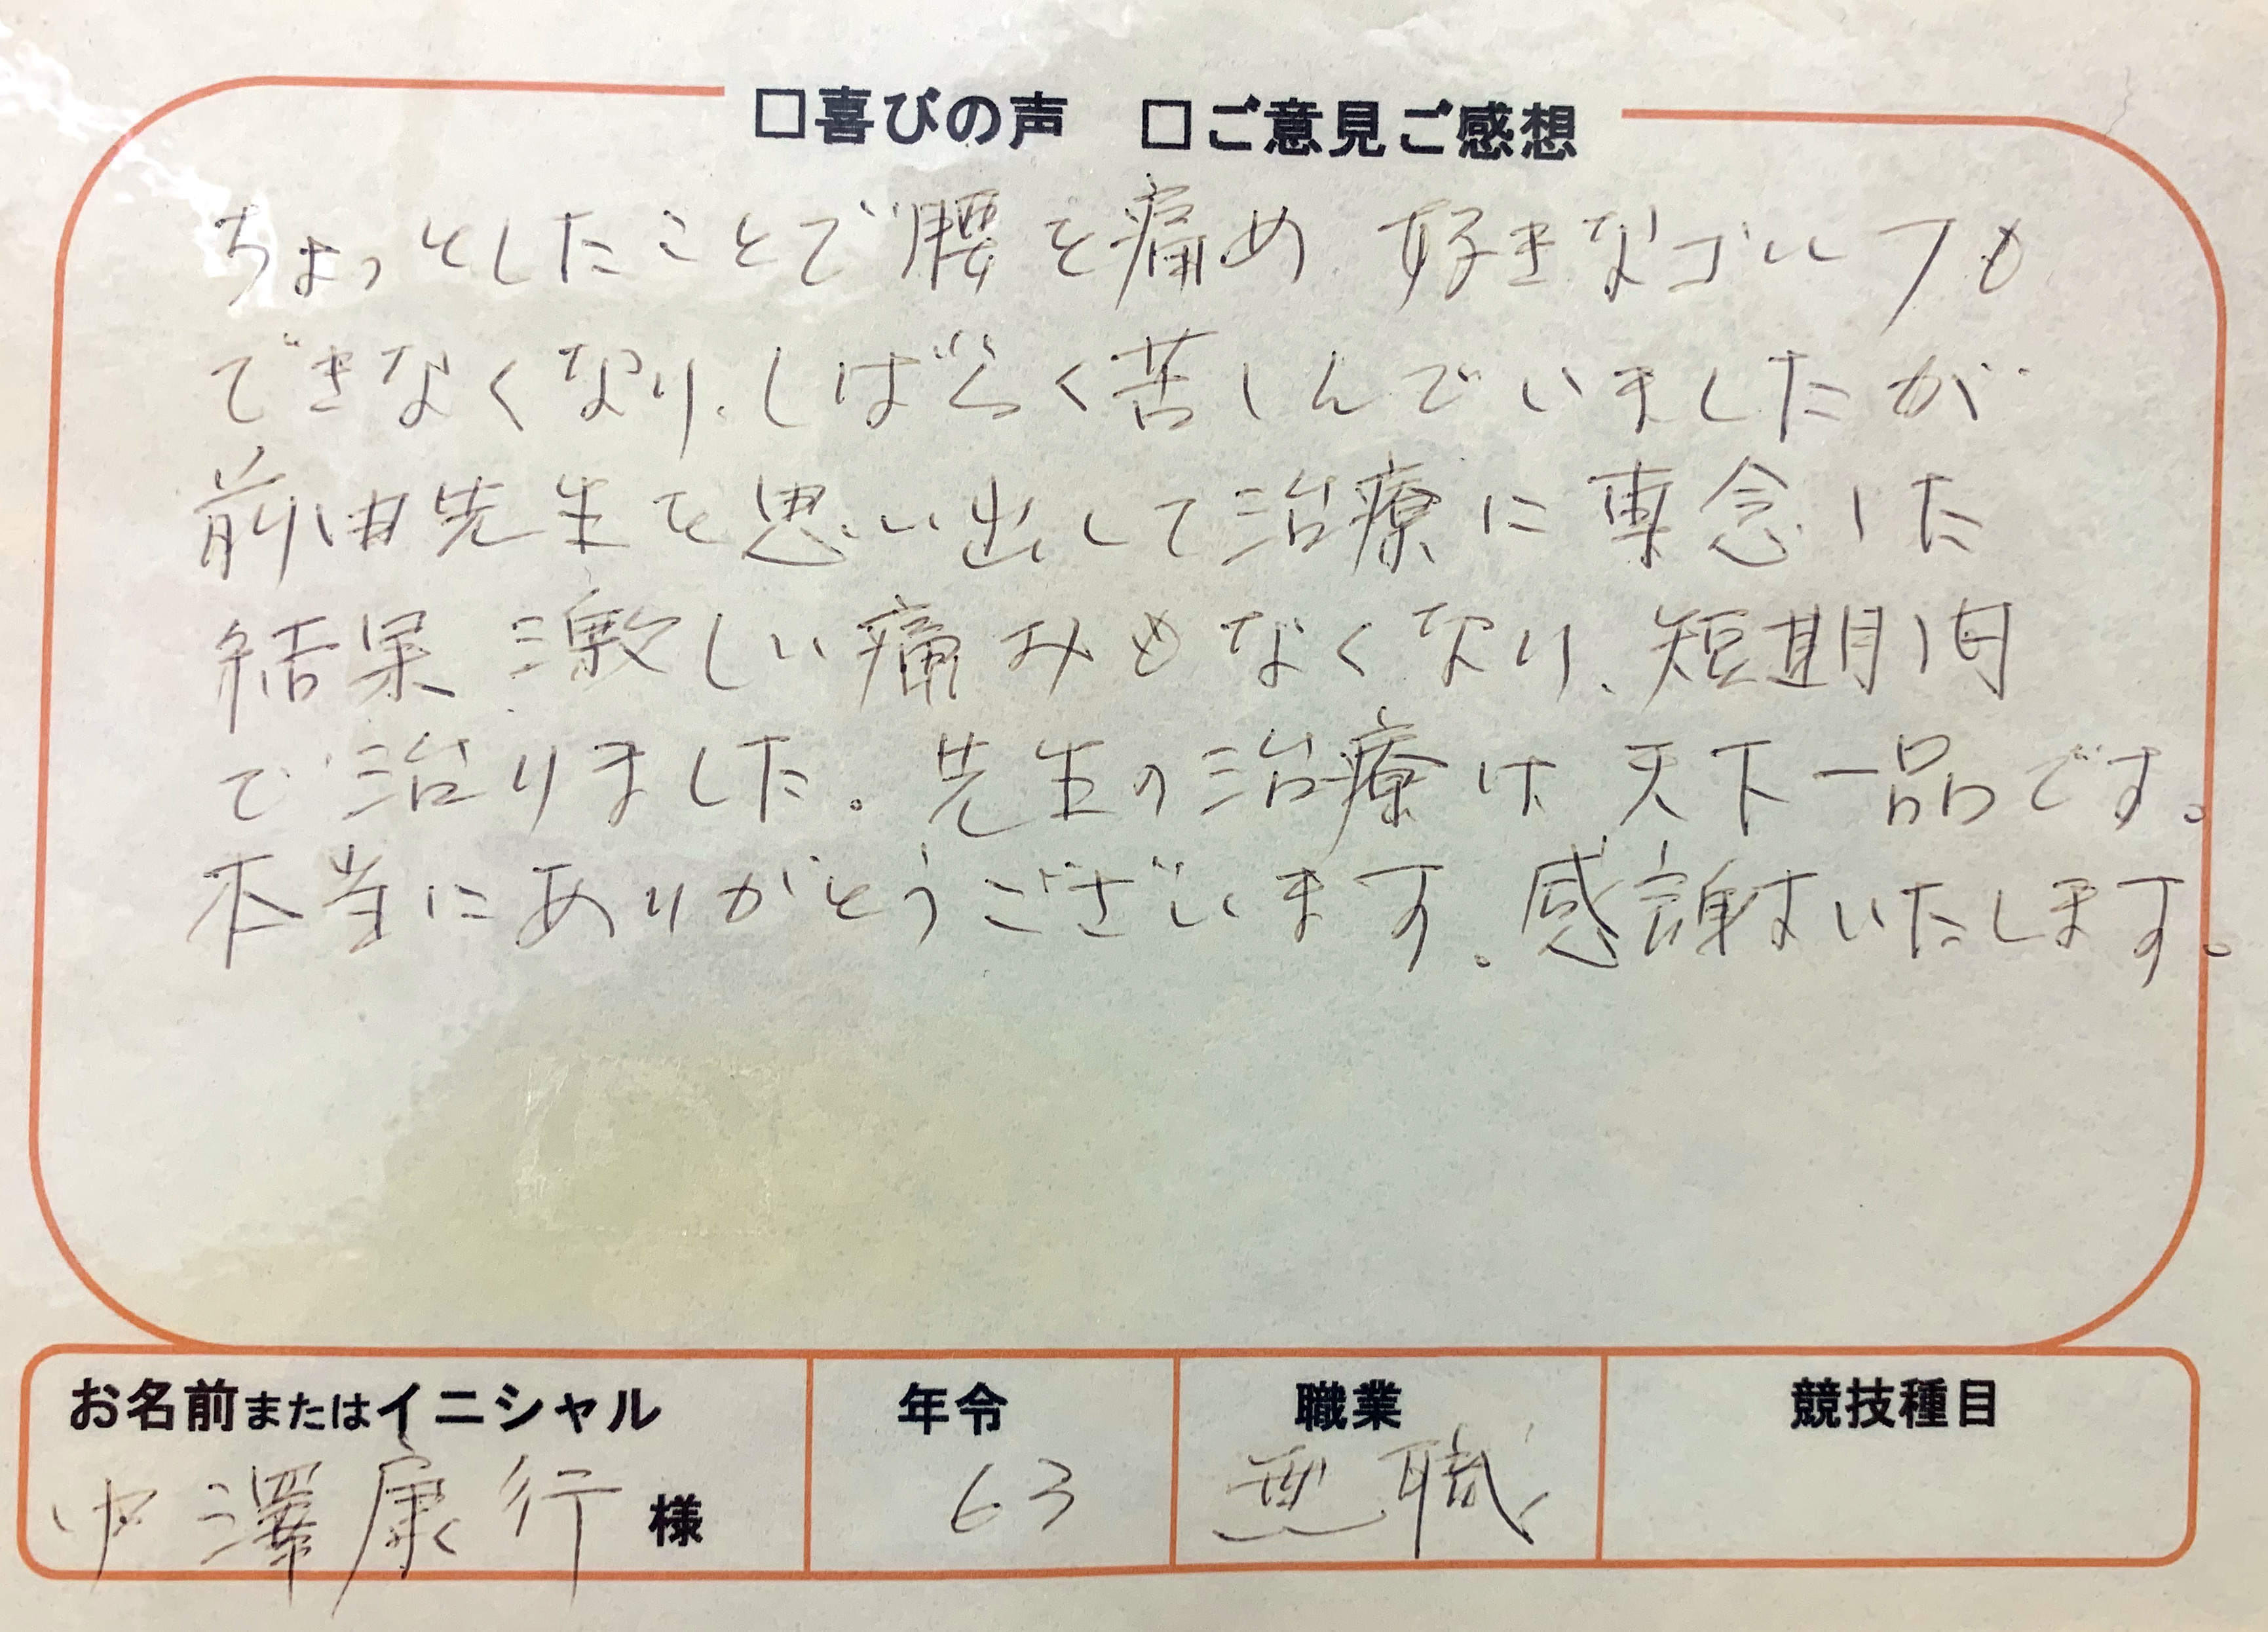 □喜びの声 □ご意見ご感想
ちょっとしたことで腰を痛め 好きなゴルフも
できなくなり、しばらく苦しんでいましたが
前田先生を思い出して治療に専念した
結果 激しい痛みもなくなり、短期間
で治りました。先生の治療は天下一品です。
本当にありがとうございます。感謝いたします。
お名前またはイニシャル 年令 職業 競技種目
中澤康行 様 63 無職